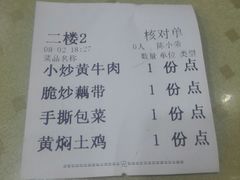 二楼2 核对单
08-02 18:27 0人 陈小荣
菜品名称 数量 单位 类型
小炒黄牛肉 1 份 点
脆炒藕带 1 份 点
手撕包菜 1 份 点
黄焖土鸡 1 份 点